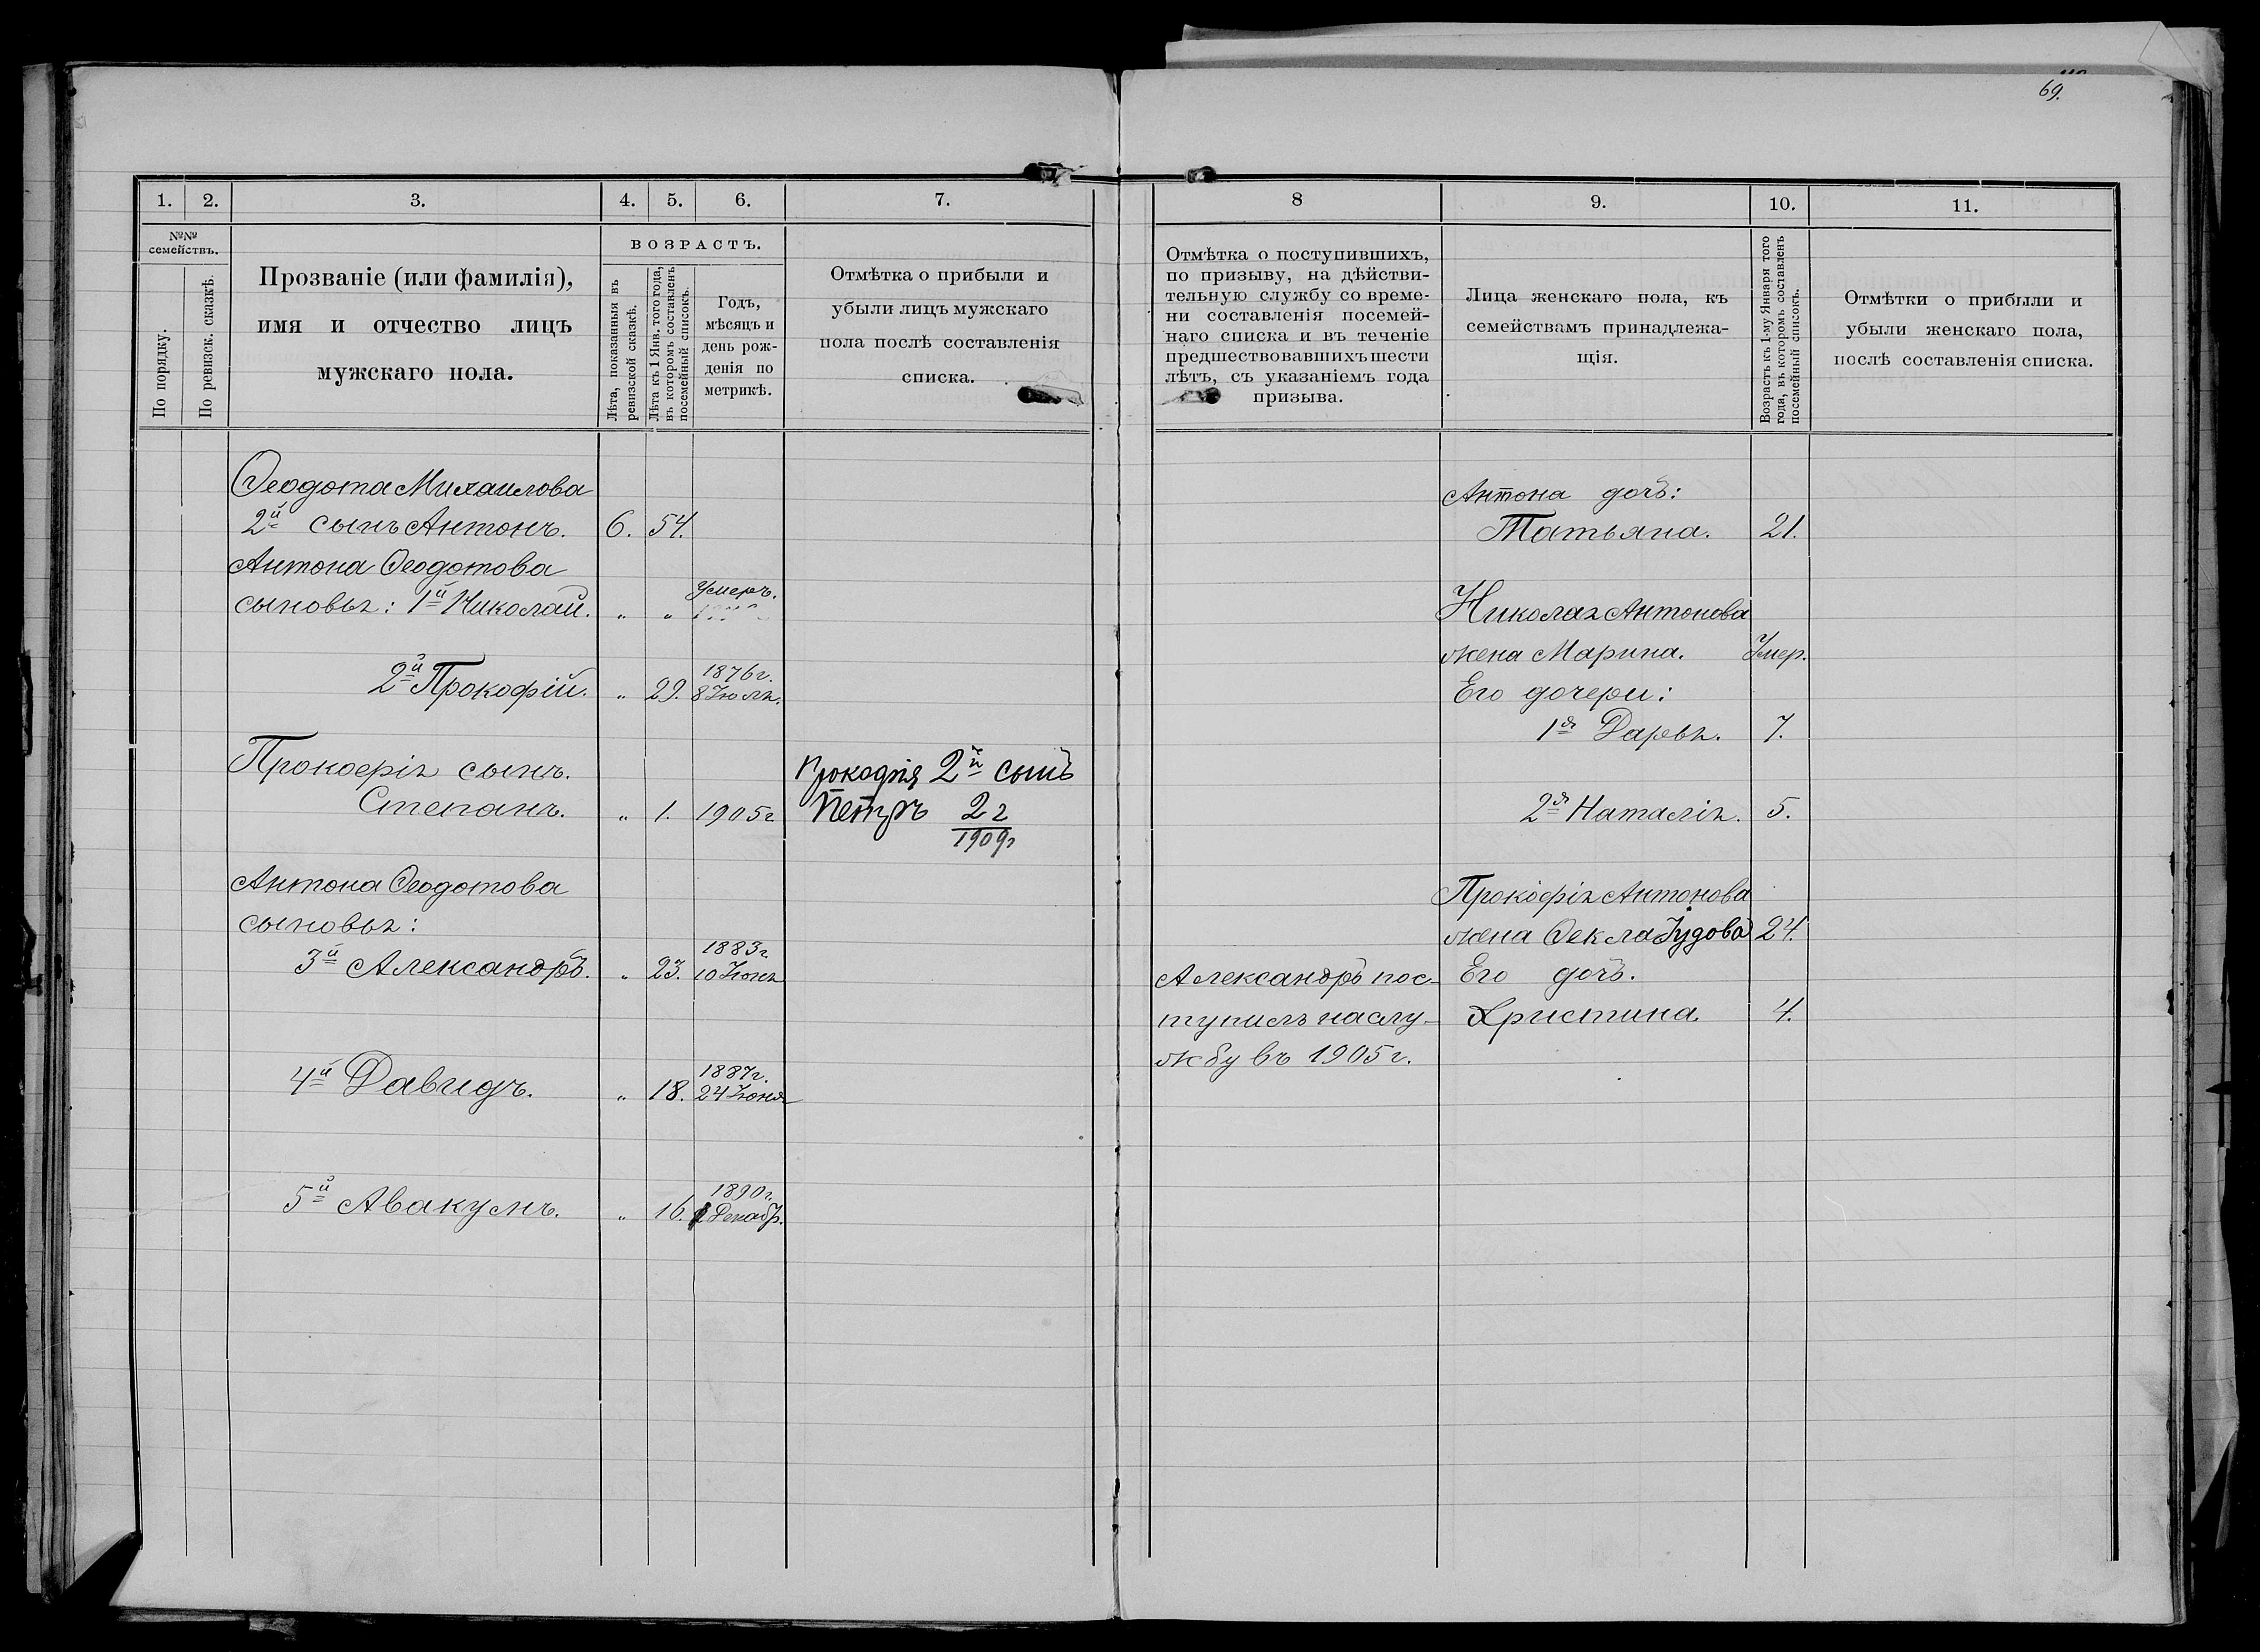 69.
1. 2. 3. 4. 5. 6. 7.
№№ семействъ.
По порядку.
По ревизск. сказкѣ.
Прозваніе (или фамилія),
имя и отчество лицъ
мужскаго пола.
ВОЗРАСТЪ.
Лѣта, показанныя въ
ревизской сказкѣ.
Лѣта къ 1 Янв. того года,
въ которомъ составленъ
посемейный списокъ.
Годъ,
мѣсяцъ и
день рож-
денія по
метрикѣ.
Отмѣтка о прибыли и
убыли лицъ мужскаго
пола послѣ составленія
списка.
Ѳеодота Михаилова
2й сынъ Антонъ. 6. 54.
Антона Ѳеодотова
Умеръ.
сыновья: 1й Николай. „ „
1876г.
2й Прокофій. „ 29. 8 Іюля.
Прокофія сынъ. Прокофія 2й сынъ
Степанъ. „ 1. 1905г Петръ 2 г
1909г
Антона Ѳеодотова
сыновья:
1883г
3й Александръ. „ 23. 10 Іюня
1887г.
4й Давидъ. „ 18. 24 Іюня
1890г.
5й Авакумъ. „ 16. Декабр.
8 9. 10. 11.
Отмѣтка о поступившихъ,
по призыву, на дѣйстви-
тельную службу со време-
ни составленія посемей-
наго списка и въ теченіе
предшествовавшихъ шести
лѣтъ, съ указаніемъ года
призыва.
Лица женскаго пола, къ
семействамъ принадлежа-
щія.
Возрастъ къ 1-му Января того
года, въ которомъ составленъ
посемейный списокъ.
Отмѣтки о прибыли и
убыли женскаго пола,
послѣ составленія списка.
Антона дочь:
Татьяна. 21.
Николая Антонова
жена Марина. Умер.
Его дочери:
1я Дарья. 7.
2я Наталія. 5.
Прокофія Антонова
жена Ѳекла Іудова 24.
Александръ пос- Его дочь.
тупилъ на слу- Христина 4.
жбу въ 1905г.